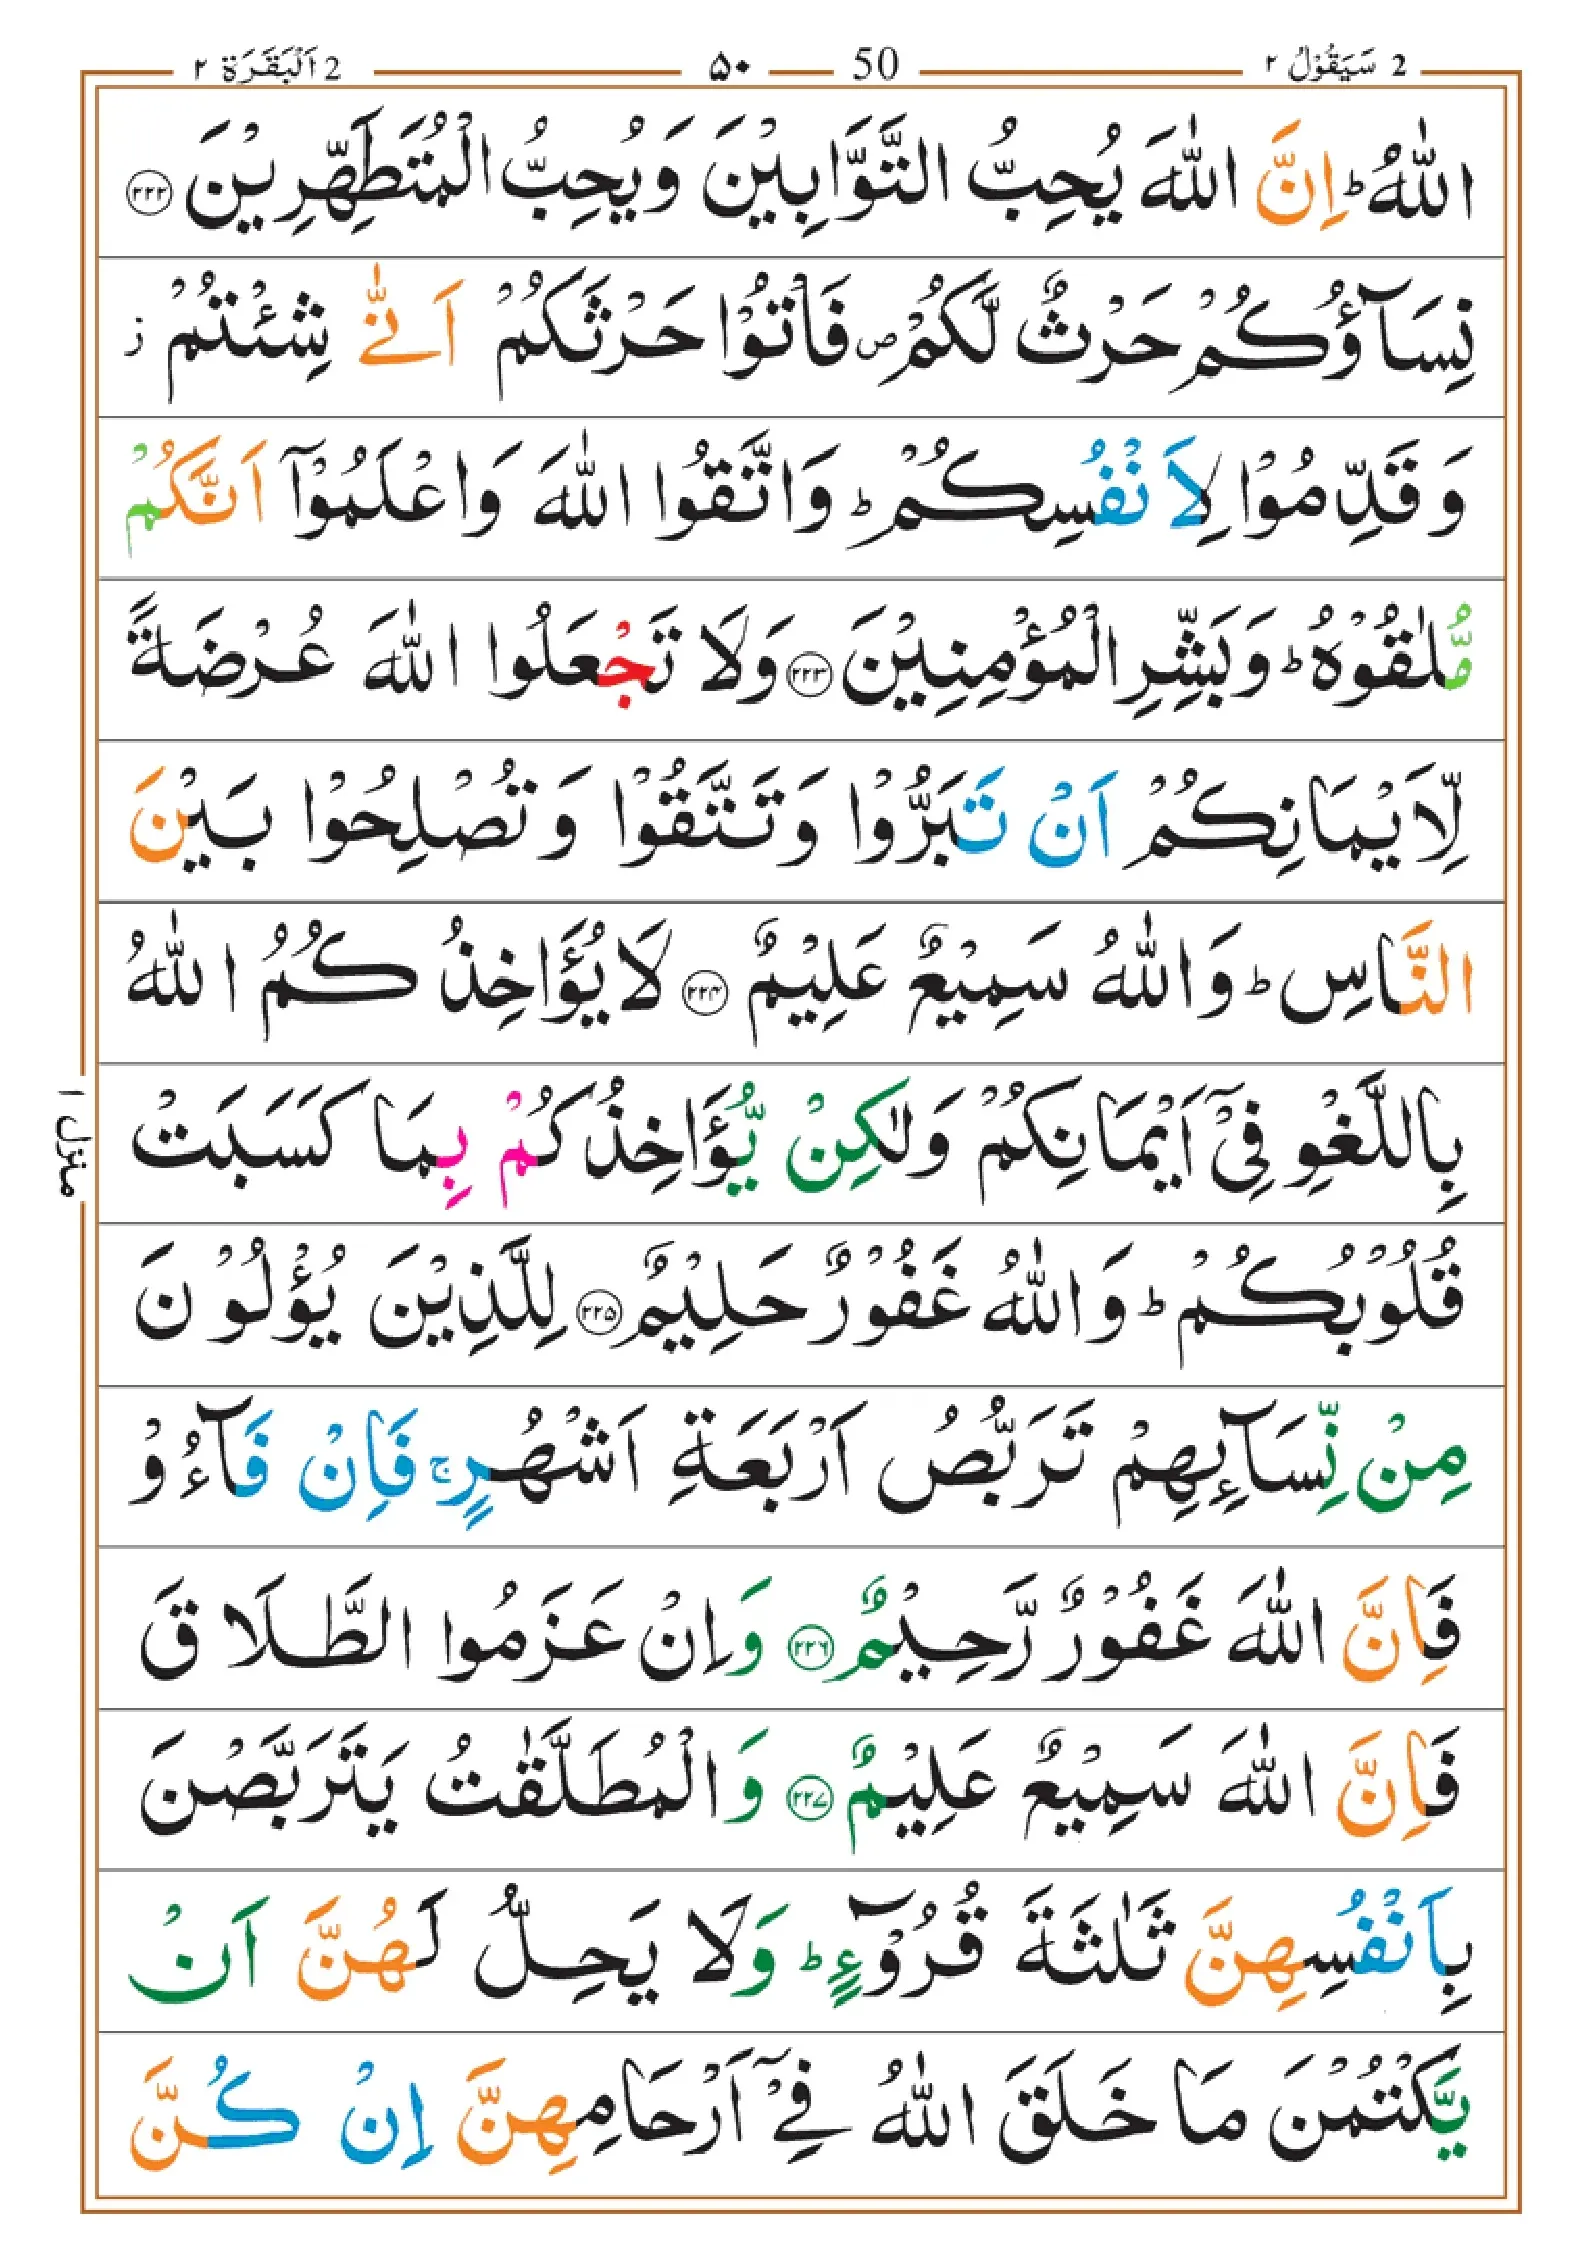 2 سَيَقُوْلُ ٢
50 ۵۰
2 اَلْبَقَرَة ٢
اللّٰهُ ؕ اِنَّ اللّٰهَ يُحِبُّ التَّوَّابِيْنَ وَيُحِبُّ الْمُتَطَهِّرِيْنَ ﴿۲۲۲﴾
نِسَآؤُكُمْ حَرْثٌ لَّكُمْ ۪ فَاْتُوْا حَرْثَكُمْ اَنّٰى شِئْتُمْ ز
وَقَدِّمُوْا لِاَنْفُسِكُمْ ؕ وَاتَّقُوا اللّٰهَ وَاعْلَمُوْٓا اَنَّكُمْ
مُّلٰقُوْهُ ؕ وَبَشِّرِ الْمُؤْمِنِيْنَ ﴿۲۲۳﴾ وَلَا تَجْعَلُوا اللّٰهَ عُرْضَةً
لِّاَيْمَانِكُمْ اَنْ تَبَرُّوْا وَتَتَّقُوْا وَتُصْلِحُوْا بَيْنَ
النَّاسِ ؕ وَاللّٰهُ سَمِيْعٌ عَلِيْمٌ ﴿۲۲۴﴾ لَا يُؤَاخِذُكُمُ اللّٰهُ
بِاللَّغْوِ فِيْٓ اَيْمَانِكُمْ وَلٰكِنْ يُّؤَاخِذُكُمْ بِمَا كَسَبَتْ
قُلُوْبُكُمْ ؕ وَاللّٰهُ غَفُوْرٌ حَلِيْمٌ ﴿۲۲۵﴾ لِلَّذِيْنَ يُؤْلُوْنَ
مِنْ نِّسَآئِهِمْ تَرَبُّصُ اَرْبَعَةِ اَشْهُرٍ ۚ فَاِنْ فَآءُوْ
فَاِنَّ اللّٰهَ غَفُوْرٌ رَّحِيْمٌ ﴿۲۲۶﴾ وَاِنْ عَزَمُوا الطَّلَاقَ
فَاِنَّ اللّٰهَ سَمِيْعٌ عَلِيْمٌ ﴿۲۲۷﴾ وَالْمُطَلَّقٰتُ يَتَرَبَّصْنَ
بِاَنْفُسِهِنَّ ثَلٰثَةَ قُرُوْٓءٍ ؕ وَلَا يَحِلُّ لَهُنَّ اَنْ
يَّكْتُمْنَ مَا خَلَقَ اللّٰهُ فِيْٓ اَرْحَامِهِنَّ اِنْ كُنَّ
منزل ١